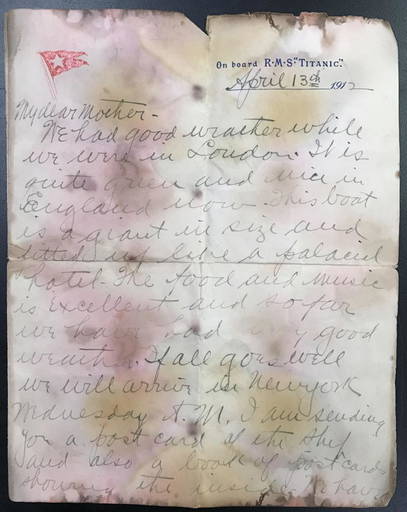 On board R·M·S "TITANIC".
April 13th 1912
My dear Mother-
We had good weather while
we were in London. It is
quite green and nice in
England now. This boat
is a giant in size and
fitted up like a palacial
hotel. The food and music
is excellent and so far
we have had very good
weather. If all goes well
we will arrive in New york
Wednesday A.M. I am sending
you a post card of the ship
and also a book of postcards
showing the inside. We have